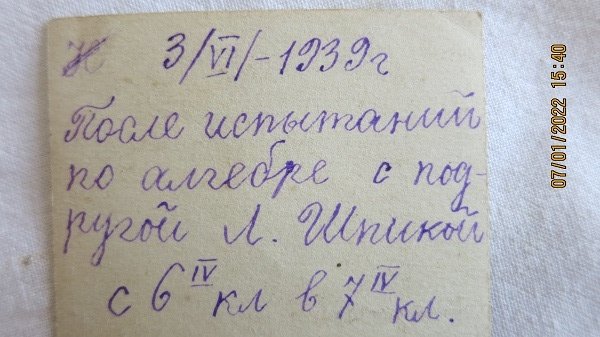 3/VI/-1939г
После испытаний
по алгебре с под-
ругой Л. Шпикой
с 6 IV кл в 7 IV кл.
07/01/2022 15:40